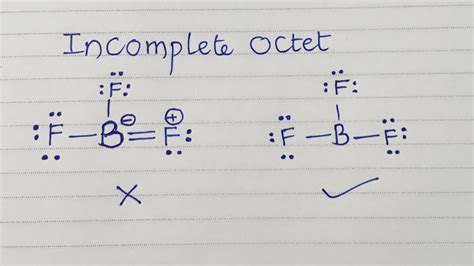 Incomplete Octet
:F: :F:
:F—B⊖=F⊕: :F—B—F:
✗ ✓